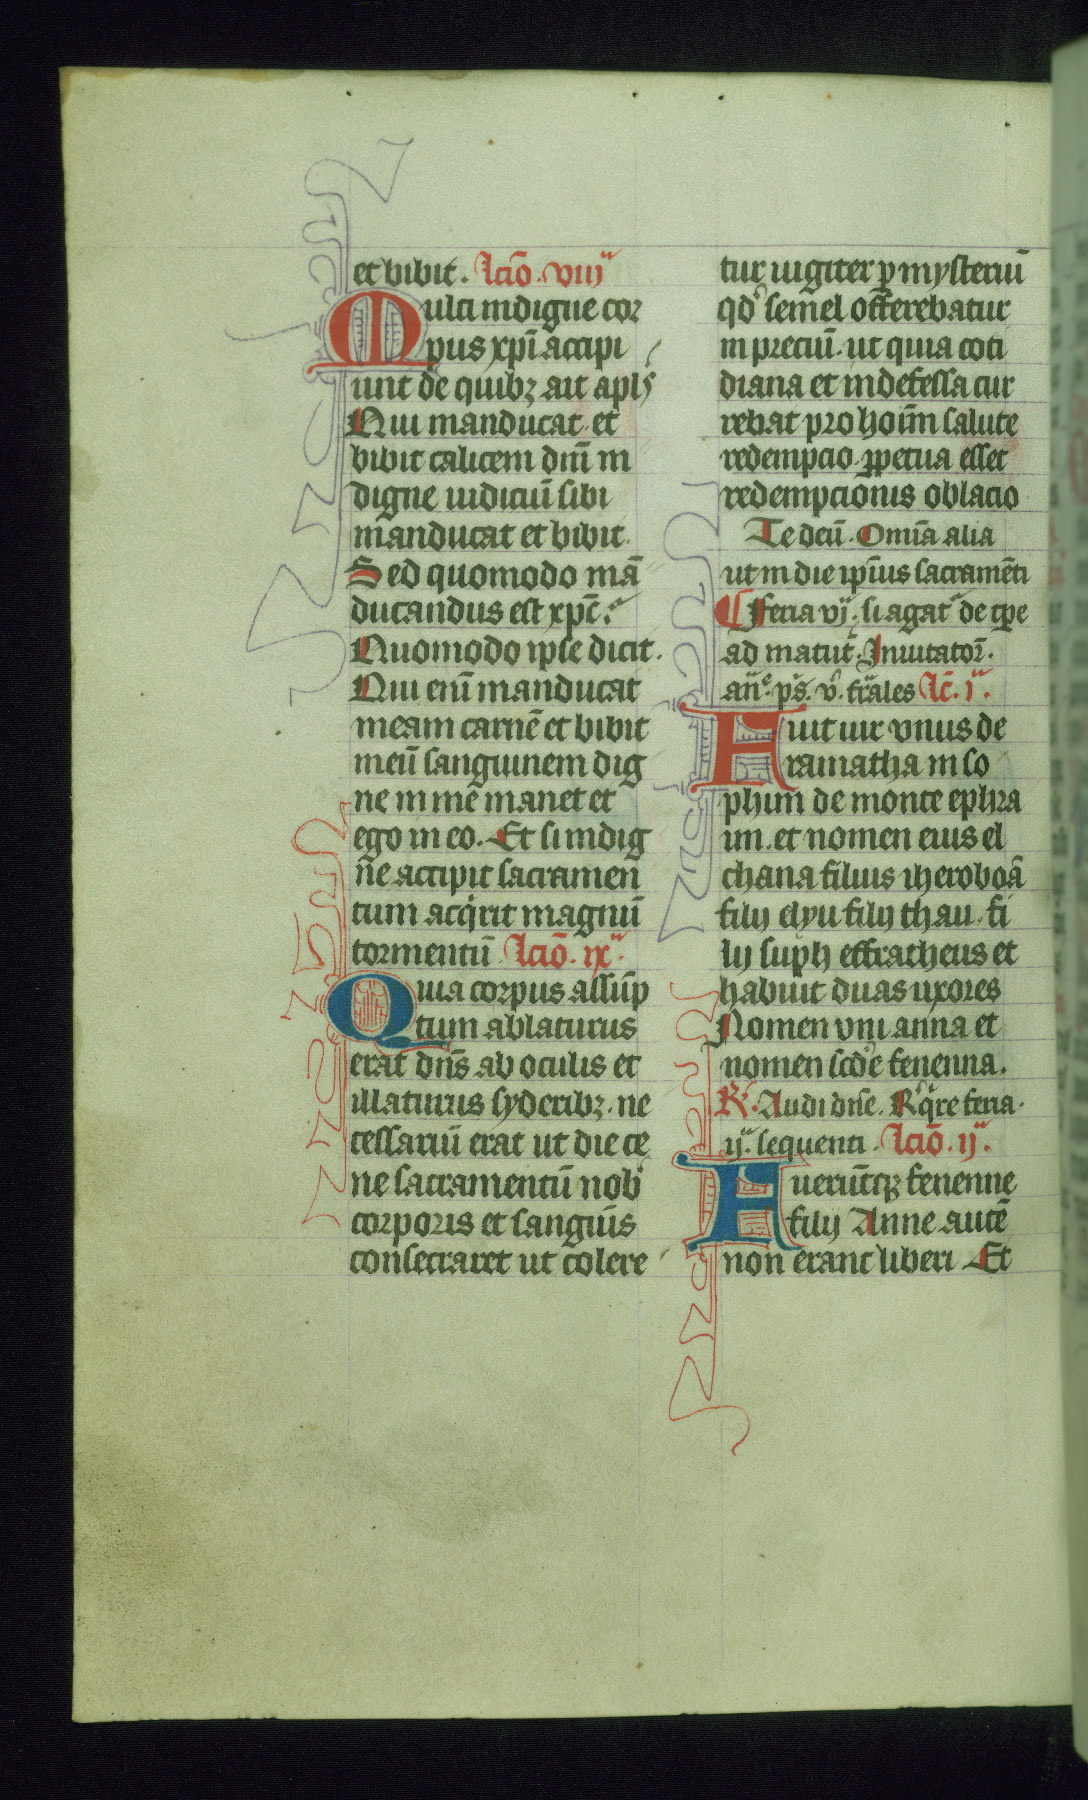 et bibit. lc̄io. viijᵃ
Multi indigne cor
pus xp̄i accipi
unt de quibꝫ ait apl̄s
Qui manducat et
bibit calicem dn̄i in
digne iudiciū sibi
manducat et bibit.
Sed quomodo mā
ducandus est xp̄c.
Quomodo ipse dicit.
Qui enī manducat
meam carnē et bibit
meū sanguinem dig
ne in me manet et
ego in eo. Et si indig
ne accipit sacramen
tum acq̄rit magnū
tormentū. lc̄io. ixᵃ.
Quia corpus assūp
tum ablaturus
erat dn̄s ab oculis et
illaturus syderibꝫ. ne
cessariū erat ut die ce
ne sacramentū nob̄
corporis et sangūis
consecraret ut colere
tur iugiter ꝑ mysteriū
qd̄ semel offerebatur
in preciū. ut quia coti
diana et indefessa cur
rebat pro hoīm salute
redempcio. ꝑpetua esset
redempcionis oblacio
Te deū. Omīa alia
ut in die ip̄ius sacramēti
feria vj. si agat᷑ de tp̄e
ad matut̄. Inuitator̄.
an̄e. ps̄. v̄. fr̄iales lc̄. jᵃ.
Fuit uir vnus de
ramatha in so
phim de monte ephra
im. et nomen eius el
chana filius iheroboā
filij elyu filij thau. fi
lij suph effratheus et
habuit duas uxores
Nomen vni anna et
nomen scd̄e fenenna.
R̷. Audi dn̄e. R̷ q̄re feria.
ijᵃ. sequenti. lc̄io. ijᵃ.
Fuerūtqꝫ fenenne
filij Anne autē
non erant liberi Et